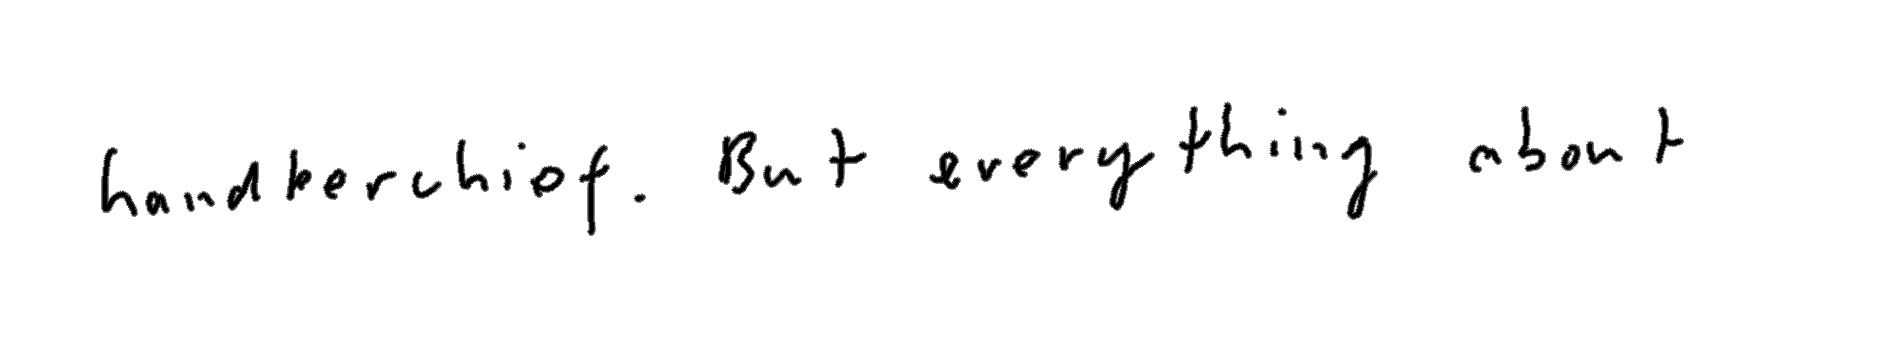 handkerchief. But everything about